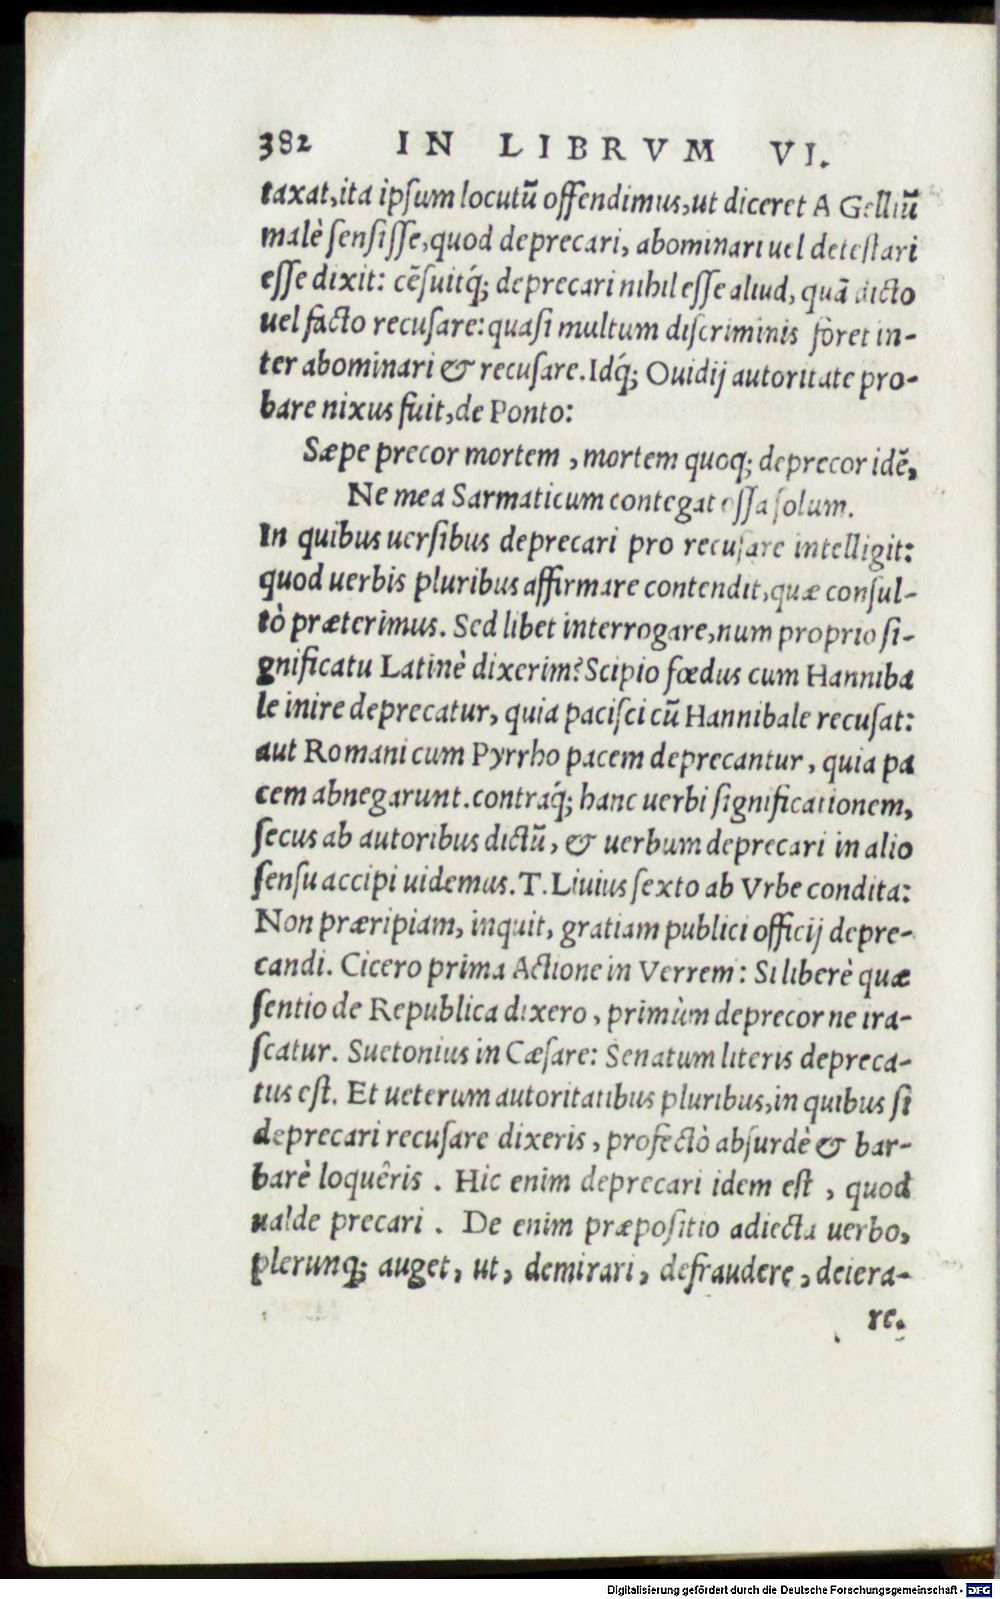 382 IN LIBRVM VI.
taxat,ita ipſum locutũ offendimus,ut diceret A Gelliũ
malè ſenſiſſe,quod deprecari, abominari uel deteſtari
eſſe dixit: cẽſuitq́; deprecari nihil eſſe aliud, quã dicto
uel facto recuſare: quaſi multum diſcriminis foret in-
ter abominari & recuſare. Idq́; Ouidij autoritate pro-
bare nixus fuit, de Ponto:
Sæpe precor mortem , mortem quoq; deprecor idẽ,
Ne mea Sarmaticum contegat oſſa ſolum.
In quibus uerſibus deprecari pro recuſare intelligit:
quod uerbis pluribus affirmare contendit,quæ conſul-
tò præterimus. Sed libet interrogare,num proprio ſi-
gnificatu Latinè dixerim? Scipio fœdus cum Hanniba
le inire deprecatur, quia paciſci cũ Hannibale recuſat:
aut Romani cum Pyrrho pacem deprecantur, quia pa
cem abnegarunt. contraq́; hanc uerbi ſignificationem,
ſecus ab autoribus dictũ, & uerbum deprecari in alio
ſenſu accipi uidemus. T. Liuius ſexto ab Vrbe condita:
Non præripiam, inquit, gratiam publici officij depre-
candi. Cicero prima Actione in Verrem: Si liberè quæ
ſentio de Republica dixero , primùm deprecor ne ira-
ſcatur. Suetonius in Cæſare: Senatum literis depreca-
tus eſt. Et ueterum autoritatibus pluribus,in quibus ſi
deprecari recuſare dixeris , profectò abſurdè & bar-
barè loquêris . Hic enim deprecari idem eſt , quod
ualde precari . De enim præpoſitio adiecta uerbo,
plerunq; auget, ut, demirari, defraudere, deiera-
re.
Digitalisierung gefördert durch die Deutsche Forschungsgemeinschaft - DFG